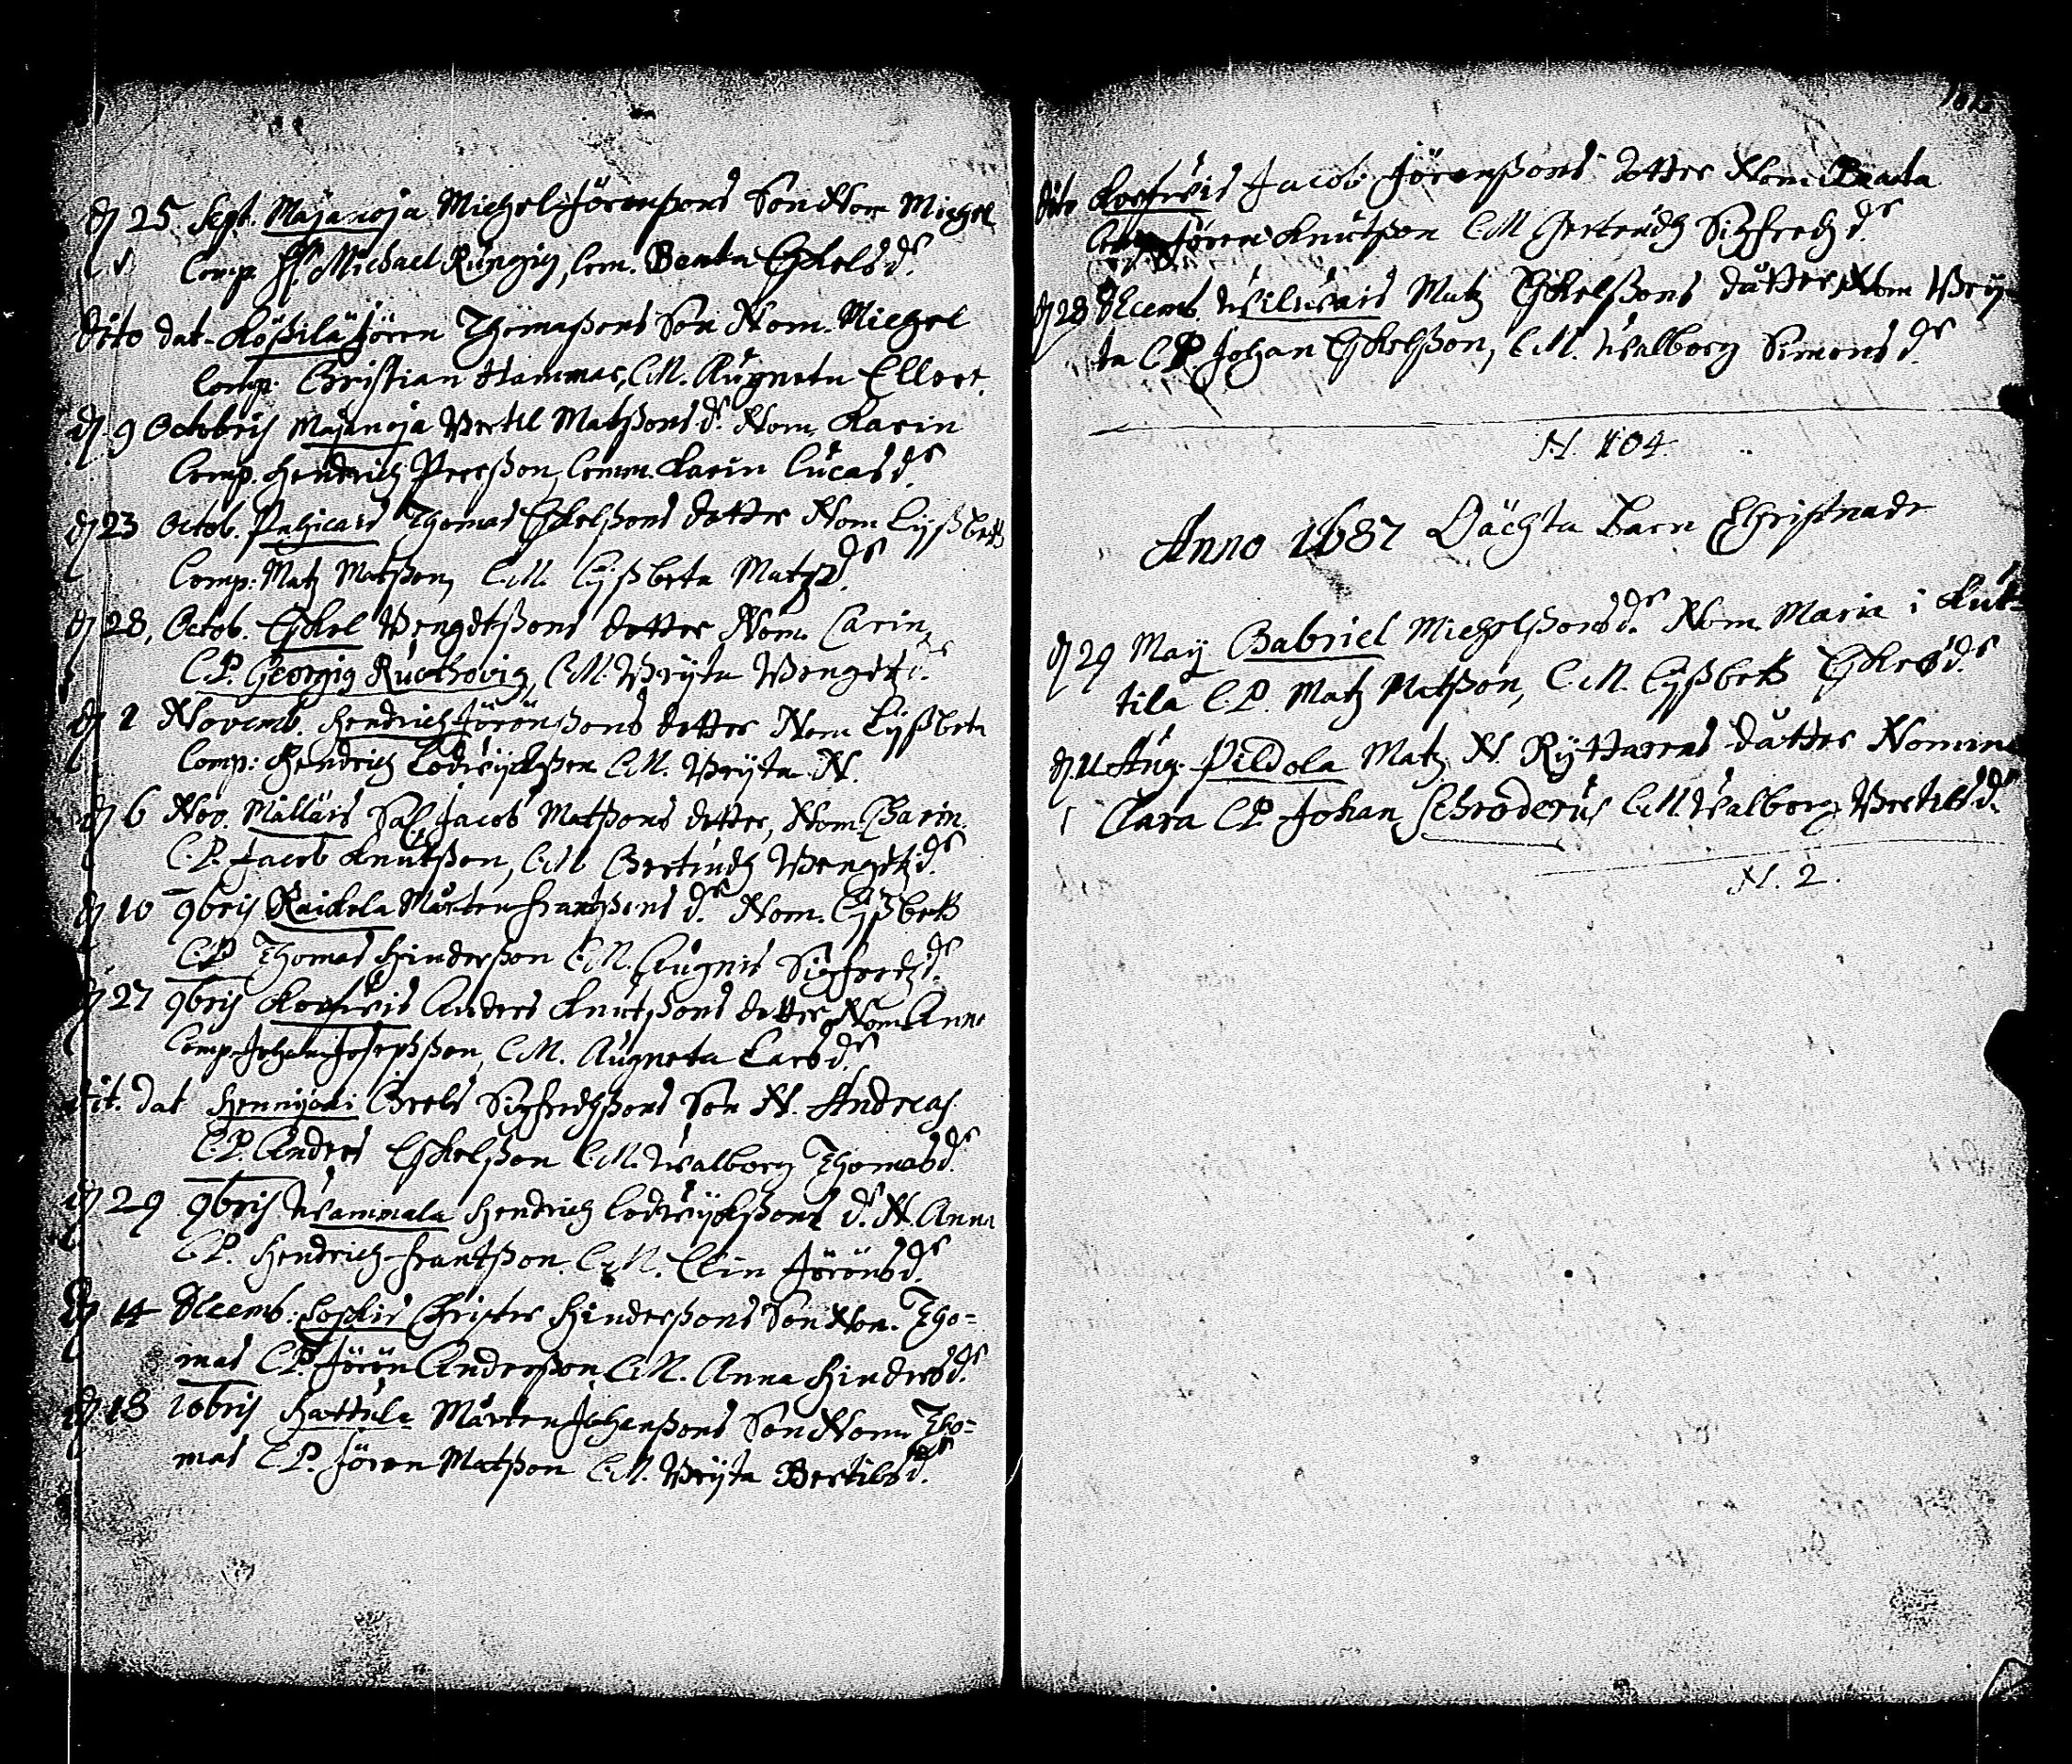 dj 25 Sept. Majanoja Michel Jörenßons Son Nom Michel
Comp. H. Michael Rungig, Com. Beata Eskelsdr.
Dito dat. Kößilä Jören Thomaßons Son Nom. Michel
Comp. Christian Hammar, C.M. Augneta Ellert.
dj 9 Octobris Majanoja Bertil Matßons dr. Nom. Karin
Comp. Hendrich Perßon, Comm. Karin Lucasdr.
dj 23 Octob. Pahicais Thomas Eskelßons dotter Nom Lyßbett
Comp: Matz Matßon, C.M. Lyßbeta Matzdr.
dj 28, Octob. Eskel Bengdtßons dotter Nom. Carin,
C.P. Georgig Ruuthovig, C.M. Bryta Bengdtzdr.
dj 1 Novemb. Hendrich Jörönßons dotter Nom Lyßbeta
Comp: Hendrich Lodwijckßon C.M. Bryta N.
dj 6 Nov. Mälläis Sal. Jacob Matßons dotter, Nom. Carin.
C.P. Jacob Knutßon, C.M. Gertrudh Bengdtzdr.
dj 10 9bris Raickela Mårten Frantßons dr. Nom. Lyßbett
C.P. Thomas Hinderßon C.M. Augnis Sigfredzdr.
dj 27 9bris Korfwis Anders Knutßons dotter Nom. Anna
Comp. Johan Josepßon, C.M. Augneta Larsdr.
dit. dat Hennijoki Greels Sigfredßons Son N. Andreas
C.P. Anders Eskelßon C.M. Walborg Thomasdr.
dj 29 9bris Wammala Hendrich Lodwijckßons dr. N. Anna
C.P. Hendrich Frantßon. C.M. Elin Jörönsdr.
dj 14 Decemb. Loskis Christer Hinderßons Son Nom. Tho=
mas C.P. Jörön Anderßon, C.M. Anna Hindersdr.
dj 18 10bris Hattula Mårten Johanßons Son Nom. Tho=
mas C.P. Jören Matßon C.M. Bryta Bertilsdr.
dito Korfwis Jacob Jörenßons dotter Nom. Beata
Jören Knutßon C.M. Gertrudh Sigfredzdr.
dj 28 Decemb. Wiluais Matz Eskelßons dåtter, Nom Bry-
ta C.P. Johan Eskelßon, C.M. Walborg Simonsdr.
N. 104.
Anno 1687 Oächta Barn Christnade
dj 29 May Gabriel Michelßons dr. Nom. Maria i Kut-
tila C.P. Matz Matßon, C.M. Lyßbett Eskelsdr.
dj 11 Aug. Pildola Matz N. Ryttarens dåtter Nomine
Clara C.P. Johan Schroderus C.M. Walborg Bertilsdr.
N. 2.